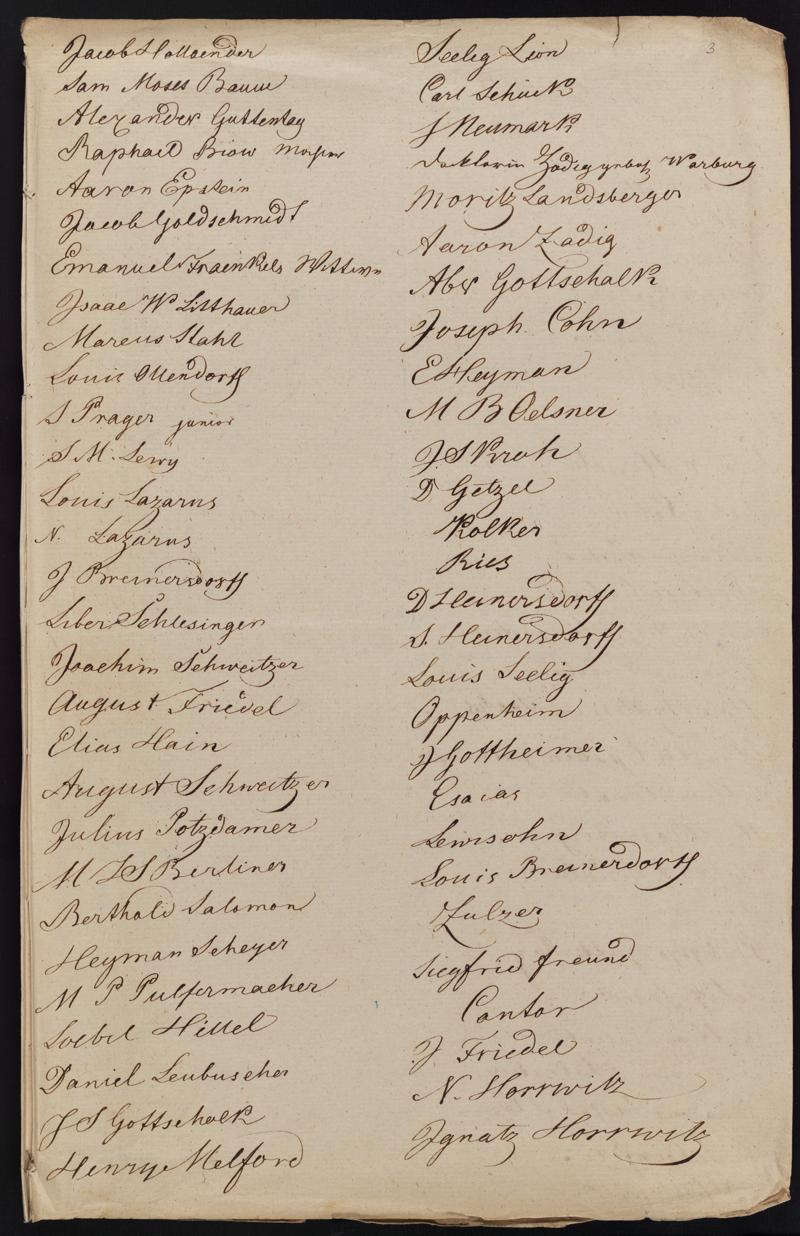 3
Jacob Hollaender
Sam Moses Bauer
Alexander Guttentag
Raphael Biow
Aaron Epstein
Jacob Goldschmidt
Emanuel Fraenkels Wittwe
Isaac W Litthauer
Marcus Stahl
Louis Ollendorff
S Prager junior
S M. Lewy
Louis Lazarus
N. Lazarus
J Breinersdorff
Liber Schlesinger
Joachim Schweitzer
August Friedel
Elias Hain
August Schweitzer
Julius Potzdamer
M L S Berliner
Berthold Salomon
Heyman Scheyer
M P Pulfermacher
Loebel Hillel
Daniel Leubuscher
J S Gottschalk
Henry Melford
Seelig Lion
Carl Schück
J Neumark
Doktorin Zadig Warburg
Moritz Landsberger
Aaron Zadig
Abr Gottschalk
Joseph Cohn
E Heyman
M B Oelsner
J S Kroh
D Getzel
Kolker
Ries
D Heinersdorff
S. Heinersdorff
Louis Seelig
Oppenheim
J Gottheimer
Esaias
Lewisohn
Louis Breinerdorff
Zulzer
Siegfried freund
Cantor
J Friedel
N. Horrwitz
Ignatz Horrwitz